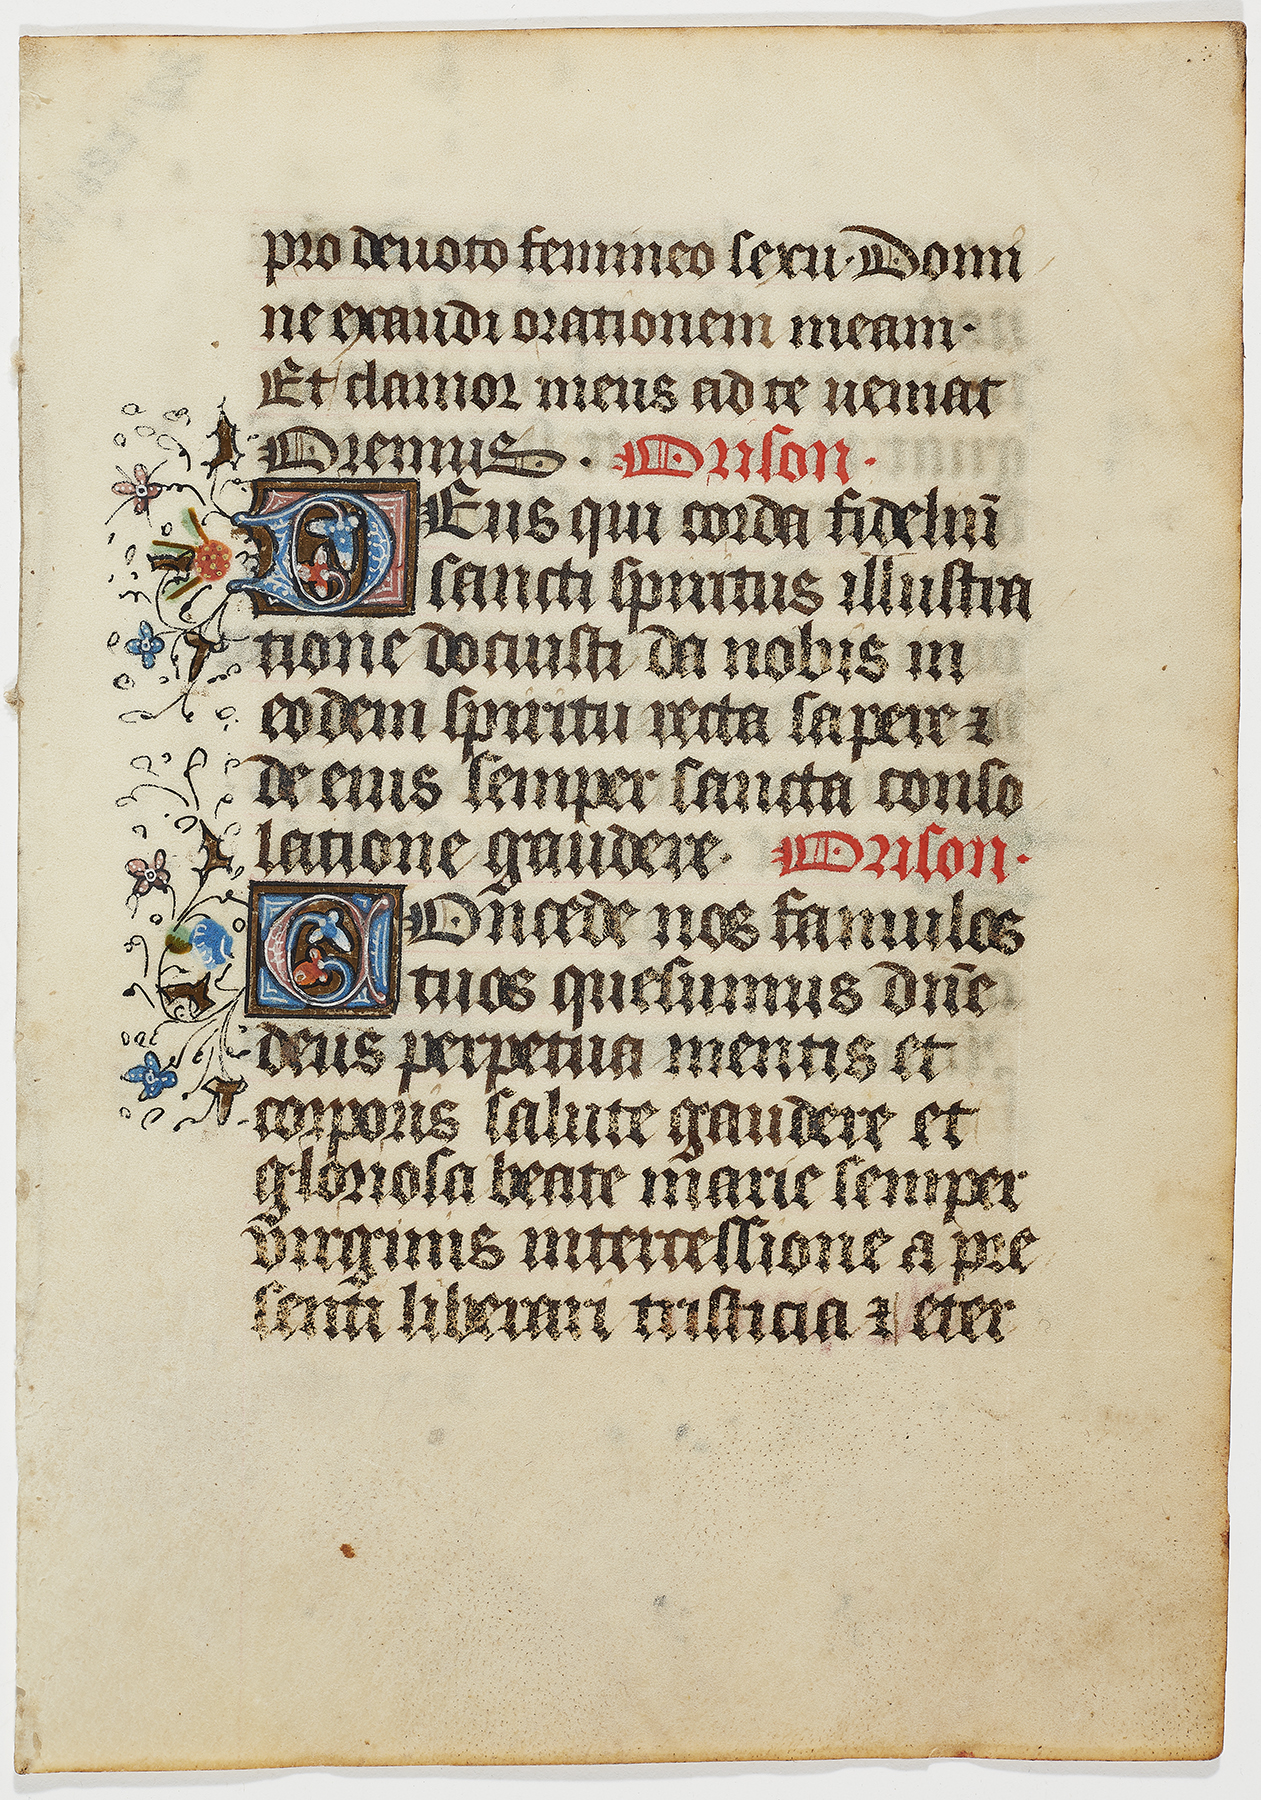 pro deuoto femineo sexu · Domi
ne exaudi orationem meam ·
Et clamor meus ad te ueniat
Oremus . Orison .
DEus qui corda fideliū
sancti spiritus illustra
tione docuisti da nobis in
eodem spiritu recta sapere ⁊
de eius semper sancta conso
latione gaudere . Orison .
COncede nos famulos
tuos quesumus dn̄e
deus perpetua mentis et
corporis salute gaudere et
gloriosa beate marie semper
virginis intercessione a pre
senti liberari tristicia ⁊ eter